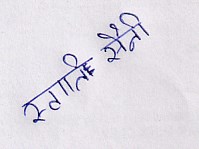 स्वाति सैनी